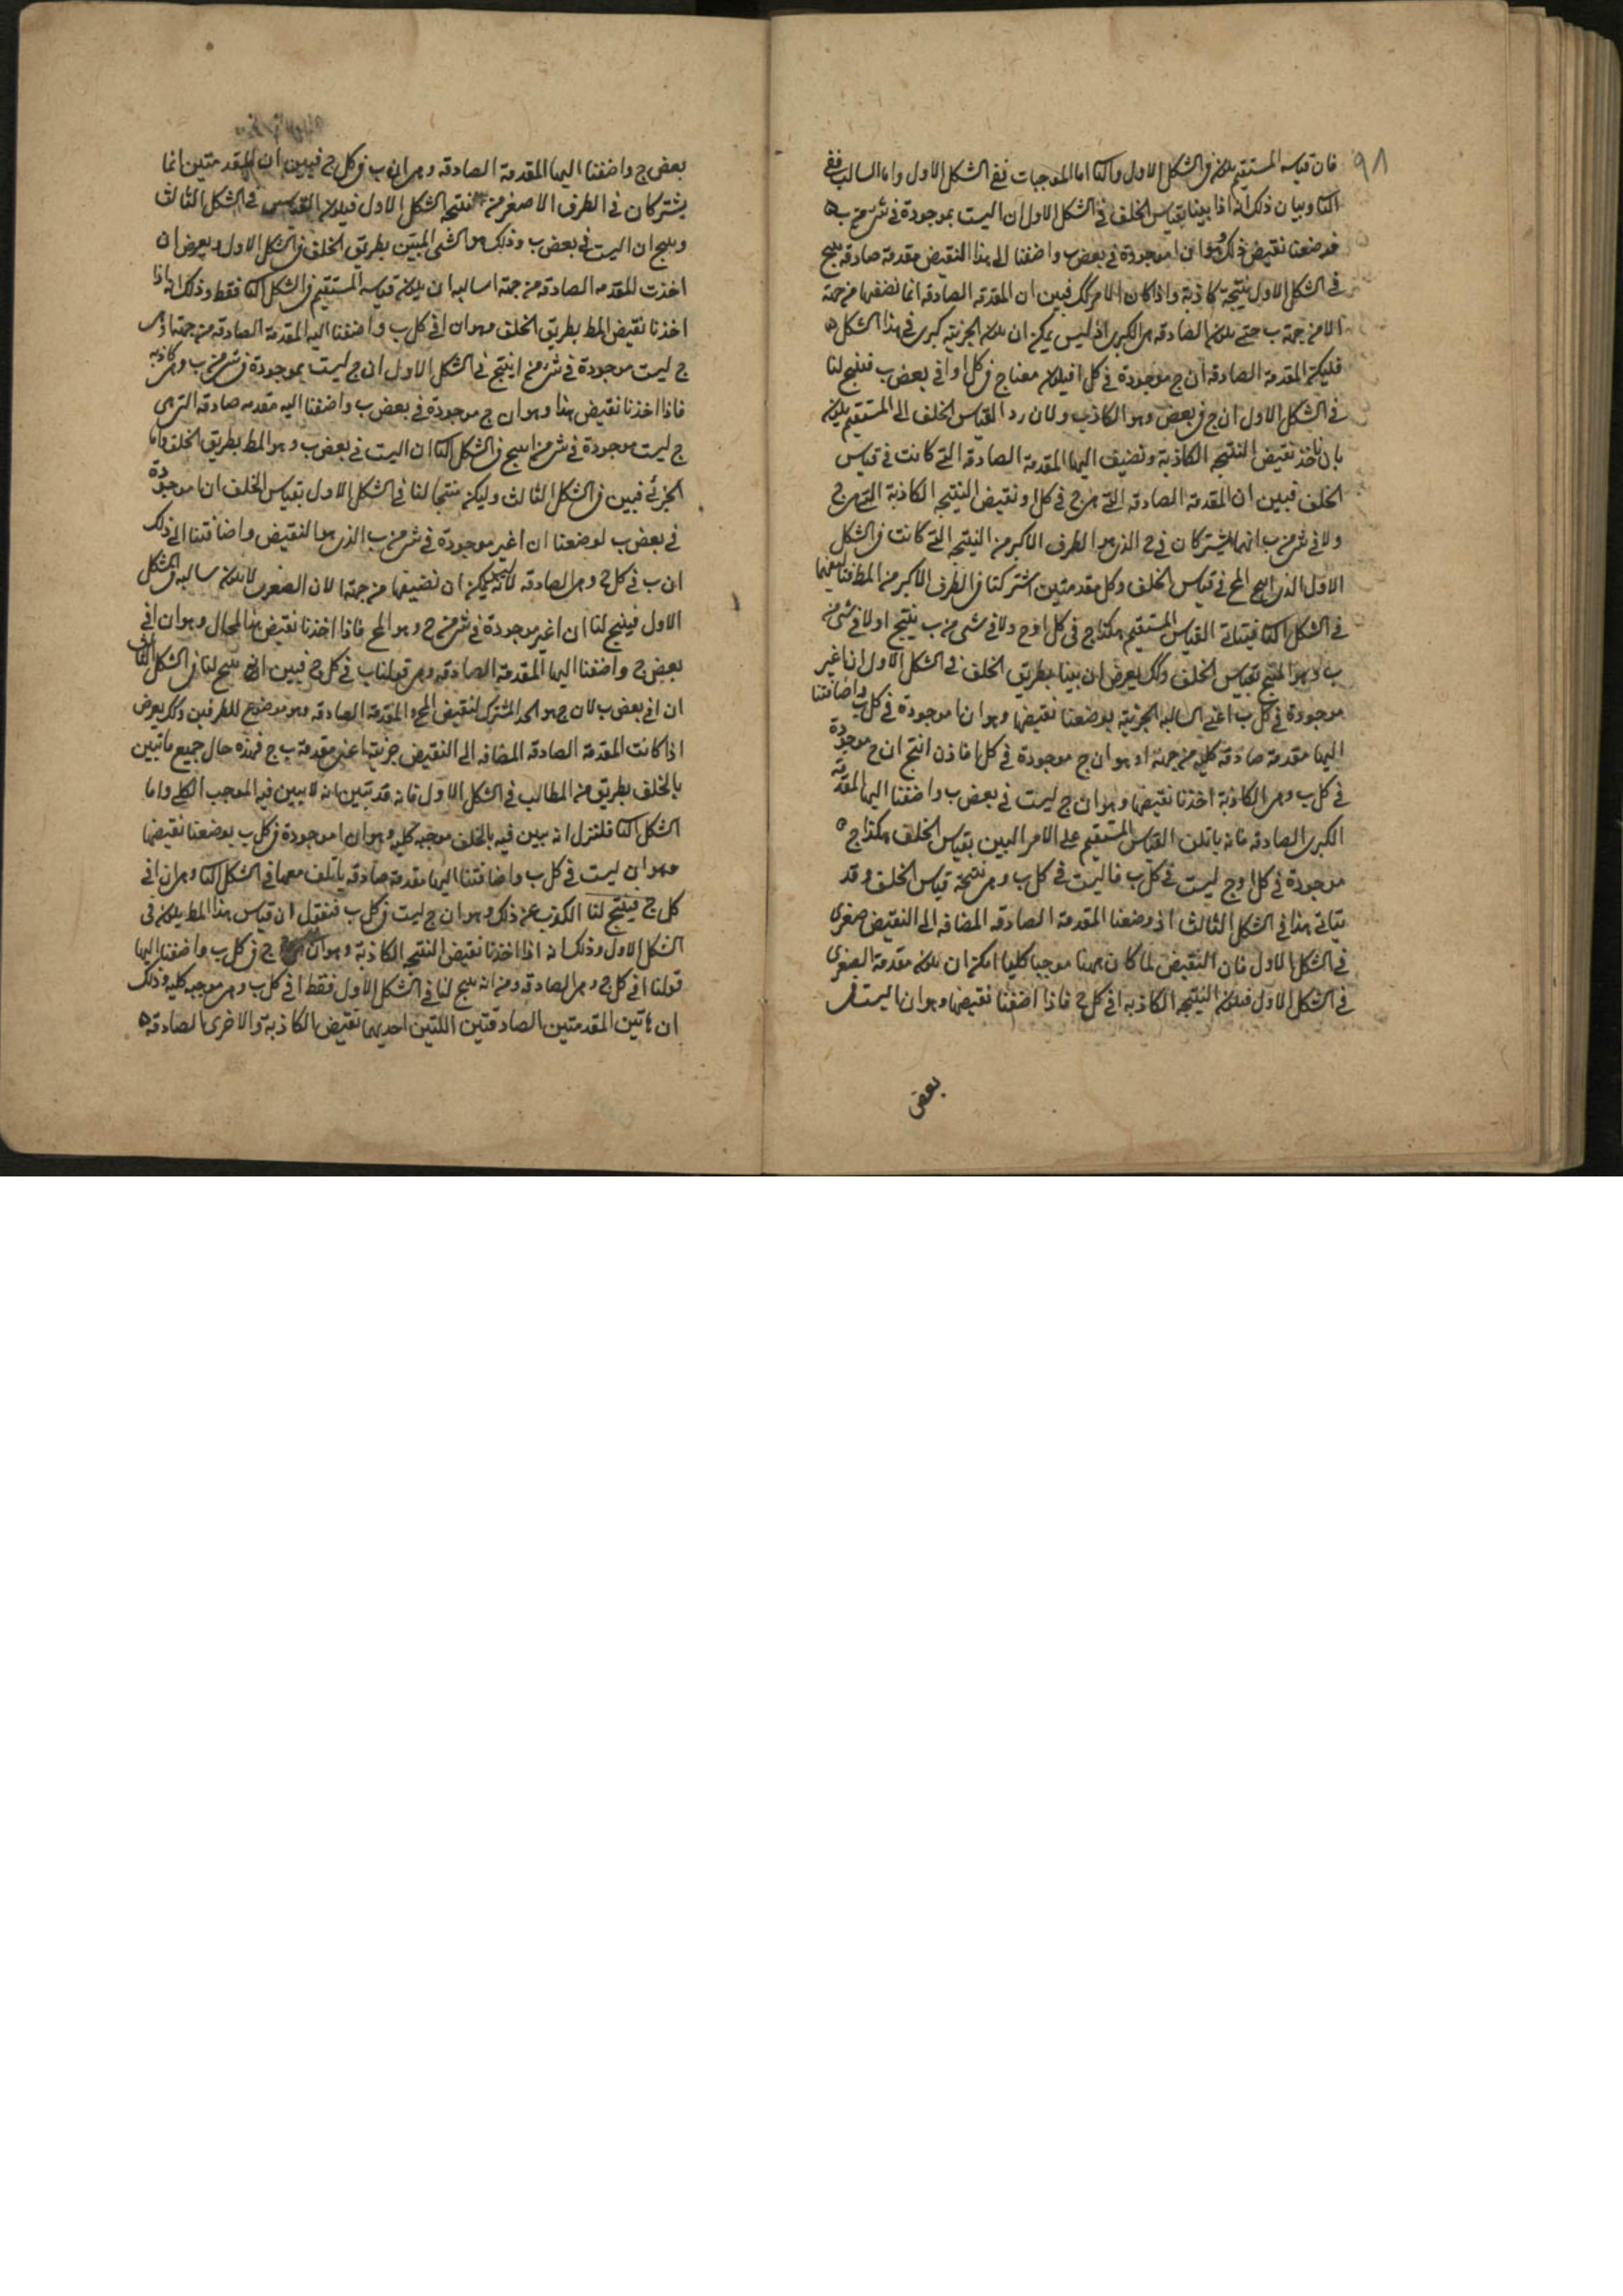 ٩٨
فان قياسه المستقيم يكون في الشكل الاول والثا اما الموجبات ففي الشكل الاول واما السالب ففي
الثا وبيان ذلك انه اذا بينا بقياس الخلف في الشكل الاول ان ا ليست بموجودة في شئ من ب
فوضعنا نقيض ذلك وهو ان ا موجودة في بعض ب واضفنا الى هذا النقيض مقدمة صادقة ينتج
في الشكل الاول نتيجة كاذبة واذا كان الامر كك فبين ان المقدمه الصادقه انما نضيفها من جهة
ا لا من جهة ب حتى يكون الصادقه هي الكبرى اذ ليس يمكن ان يكون الجزئية كبرى في هذا الشكل
فليكن المقدمة الصادقه ان ج موجودة في كل ا فيكون معنا ج في كل ا وا في بعض ب فينتج لنا
في الشكل الاول ان ج في بعض وهو الكاذب ولان رد القياس الخلف الى المستقيم يكون
بان ناخذ نقيض النتيجه الكاذبة ونضيف اليها المقدمة الصادقه التي كانت في قياس
الخلف فبين ان المقدمة الصادقه التي هي ج في كل ا ونقيض النتيجه الكاذبة التي هي ج
ولا في شئ من ب انهما يشتركان في ج الذي هو الطرف الاكبر من النتيجه التي كانت في الشكل
الاول الذي انتج المح في قياس الخلف وكل مقدمتين اشتركتا في الطرف الاكبر من المط فتاليفهما
في الشكل الثا فيتاتى القياس المستقيم هكذا ج في كل ا وج ولا في شئ من ب ينتج ا ولا في شئ من
ب وهو المنتج بقياس الخلف وكك يعرض ان بينا بطريق الخلف في الشكل الاول ان ا غير
موجودة في كل ب اعني السالبه الجزئية بوضعنا نقيضها وهو ان ا موجودة في كل ب واضافتنا
اليها مقدمة صادقه كليه من جهة ا وهو ان ج موجودة في كل ا فاذن انتج ان ج موجودة
في كل ب وهي الكاذبة اخذنا نقيضها وهو ان ج ليست في بعض ب واضفنا اليها المقدمة
الكبرى الصادقه فانه ياتلف القياس المستقيم على الامر البين بقياس الخلف هكذا ج
موجودة في كل ا وج ليست في كل ب فا ليست في كل ب وهي نتيجة قياس الخلف وقد
يتاتى هذا في الشكل الثالث اذ وضعنا المقدمة الصادقه المضافه الى النقيض صغرى
في الشكل الاول فان النقيض لما كان ههنا موجبا كليا امكن ان يكون مقدمة الصغرى
في الشكل الاول فيكون النتيجه الكاذبه ا في كل ج فاذا اضفنا نقيضها وهو ان ا ليست في
بعض
بعض ج واضفنا اليها المقدمة الصادقه وهي ان ب في كل ج فبين ان المقدمتين انما
يشتركان في الطرف الاصغر من نتيجه الشكل الاول فيكون القياس في الشكل الثالث
وينتج ان ا ليست في بعض ب وذلك هو الشئ المبين بطريق الخلف في الشكل الاول ويعرض ان
اخذت المقدمه الصادقه من جهة ا سالبه ان يكون قياسه المستقيم في الشكل الثا فقط وذلك انه اذا
اخذنا نقيض المط بطريق الخلف وهو ان ا في كل ب واضفنا اليه المقدمة الصادقه من جهة ا وهي
ج ليست موجودة في شئ من ا ينتج في الشكل الاول ان ج ليست بموجودة في شئ من ب وهي كاذبه
فاذا اخذنا نقيض هذا وهو ان ج موجودة في بعض ب واضفنا اليه مقدمه صادقه التي هي
ج ليست موجودة في شئ من ا ينتج في الشكل الثا ان ا ليست في بعض ب وهو المط بطريق الخلف واما
الجزئي فبين في الشكل الثالث وليكن منتجا لنا في الشكل الاول بقياس الخلف ان ا موجودة
في بعض ب لوضعنا ان ا غير موجودة في شئ من ب الذي هو النقيض واضافتنا الى ذلك
ان ب في كل ج وهي الصادقه لانه ليس يمكن ان نضيفها من جهة ا لان الصغرى لا يكون سالبه في الشكل
الاول فينتج لنا ان ا غير موجودة في شئ من ج وهو المح فاذا اخذنا نقيض هذا المحال وهو ان ا في
بعض ج واضفنا اليها المقدمة الصادقه وهي قولنا ب في كل ج فبين انه ينتج لنا في الشكل الثالث
ان ا في بعض ب لان ج هو الحد المشترك لنقيض المح والمقدمة الصادقه وهو موضوع للطرفين وكك يعرض
اذا كانت المقدمة الصادقه المضافه الى النقيض جزئية اعني مقدمة ب ج فهذه حال جميع ما تبين
بالخلف بطريق من المطالب في الشكل الاول فانه قد تبين انه لا يبين فيه الموجب الكلي واما
الشكل الثا فلننزل انه يبين فيه بالخلف موجبه كليه وهو ان ا موجودة في كل ب بوضعنا نقيضها
وهو ا ليست في كل ب واضافتنا اليها مقدمة صادقه ياتلف معها في الشكل الثا وهي ان ا في
كل ج فينتج لنا الكذب عن ذلك وهو ان ج ليست في كل ب فنقول ان قياس هذا المط يكون في
الشكل الاول وذلك انه اذا اخذنا نقيض النتيجه الكاذبة وهو ان ج في كل ب واضفنا اليها
قولنا ا في كل ج وهي الصادقه ومن انه ينتج لنا في الشكل الاول فقط ا في كل ب وهي موجبه كليه وذلك
ان هاتين المقدمتين الصادقتين اللتين احديهما نقيض الكاذبة والاخرى الصادقه